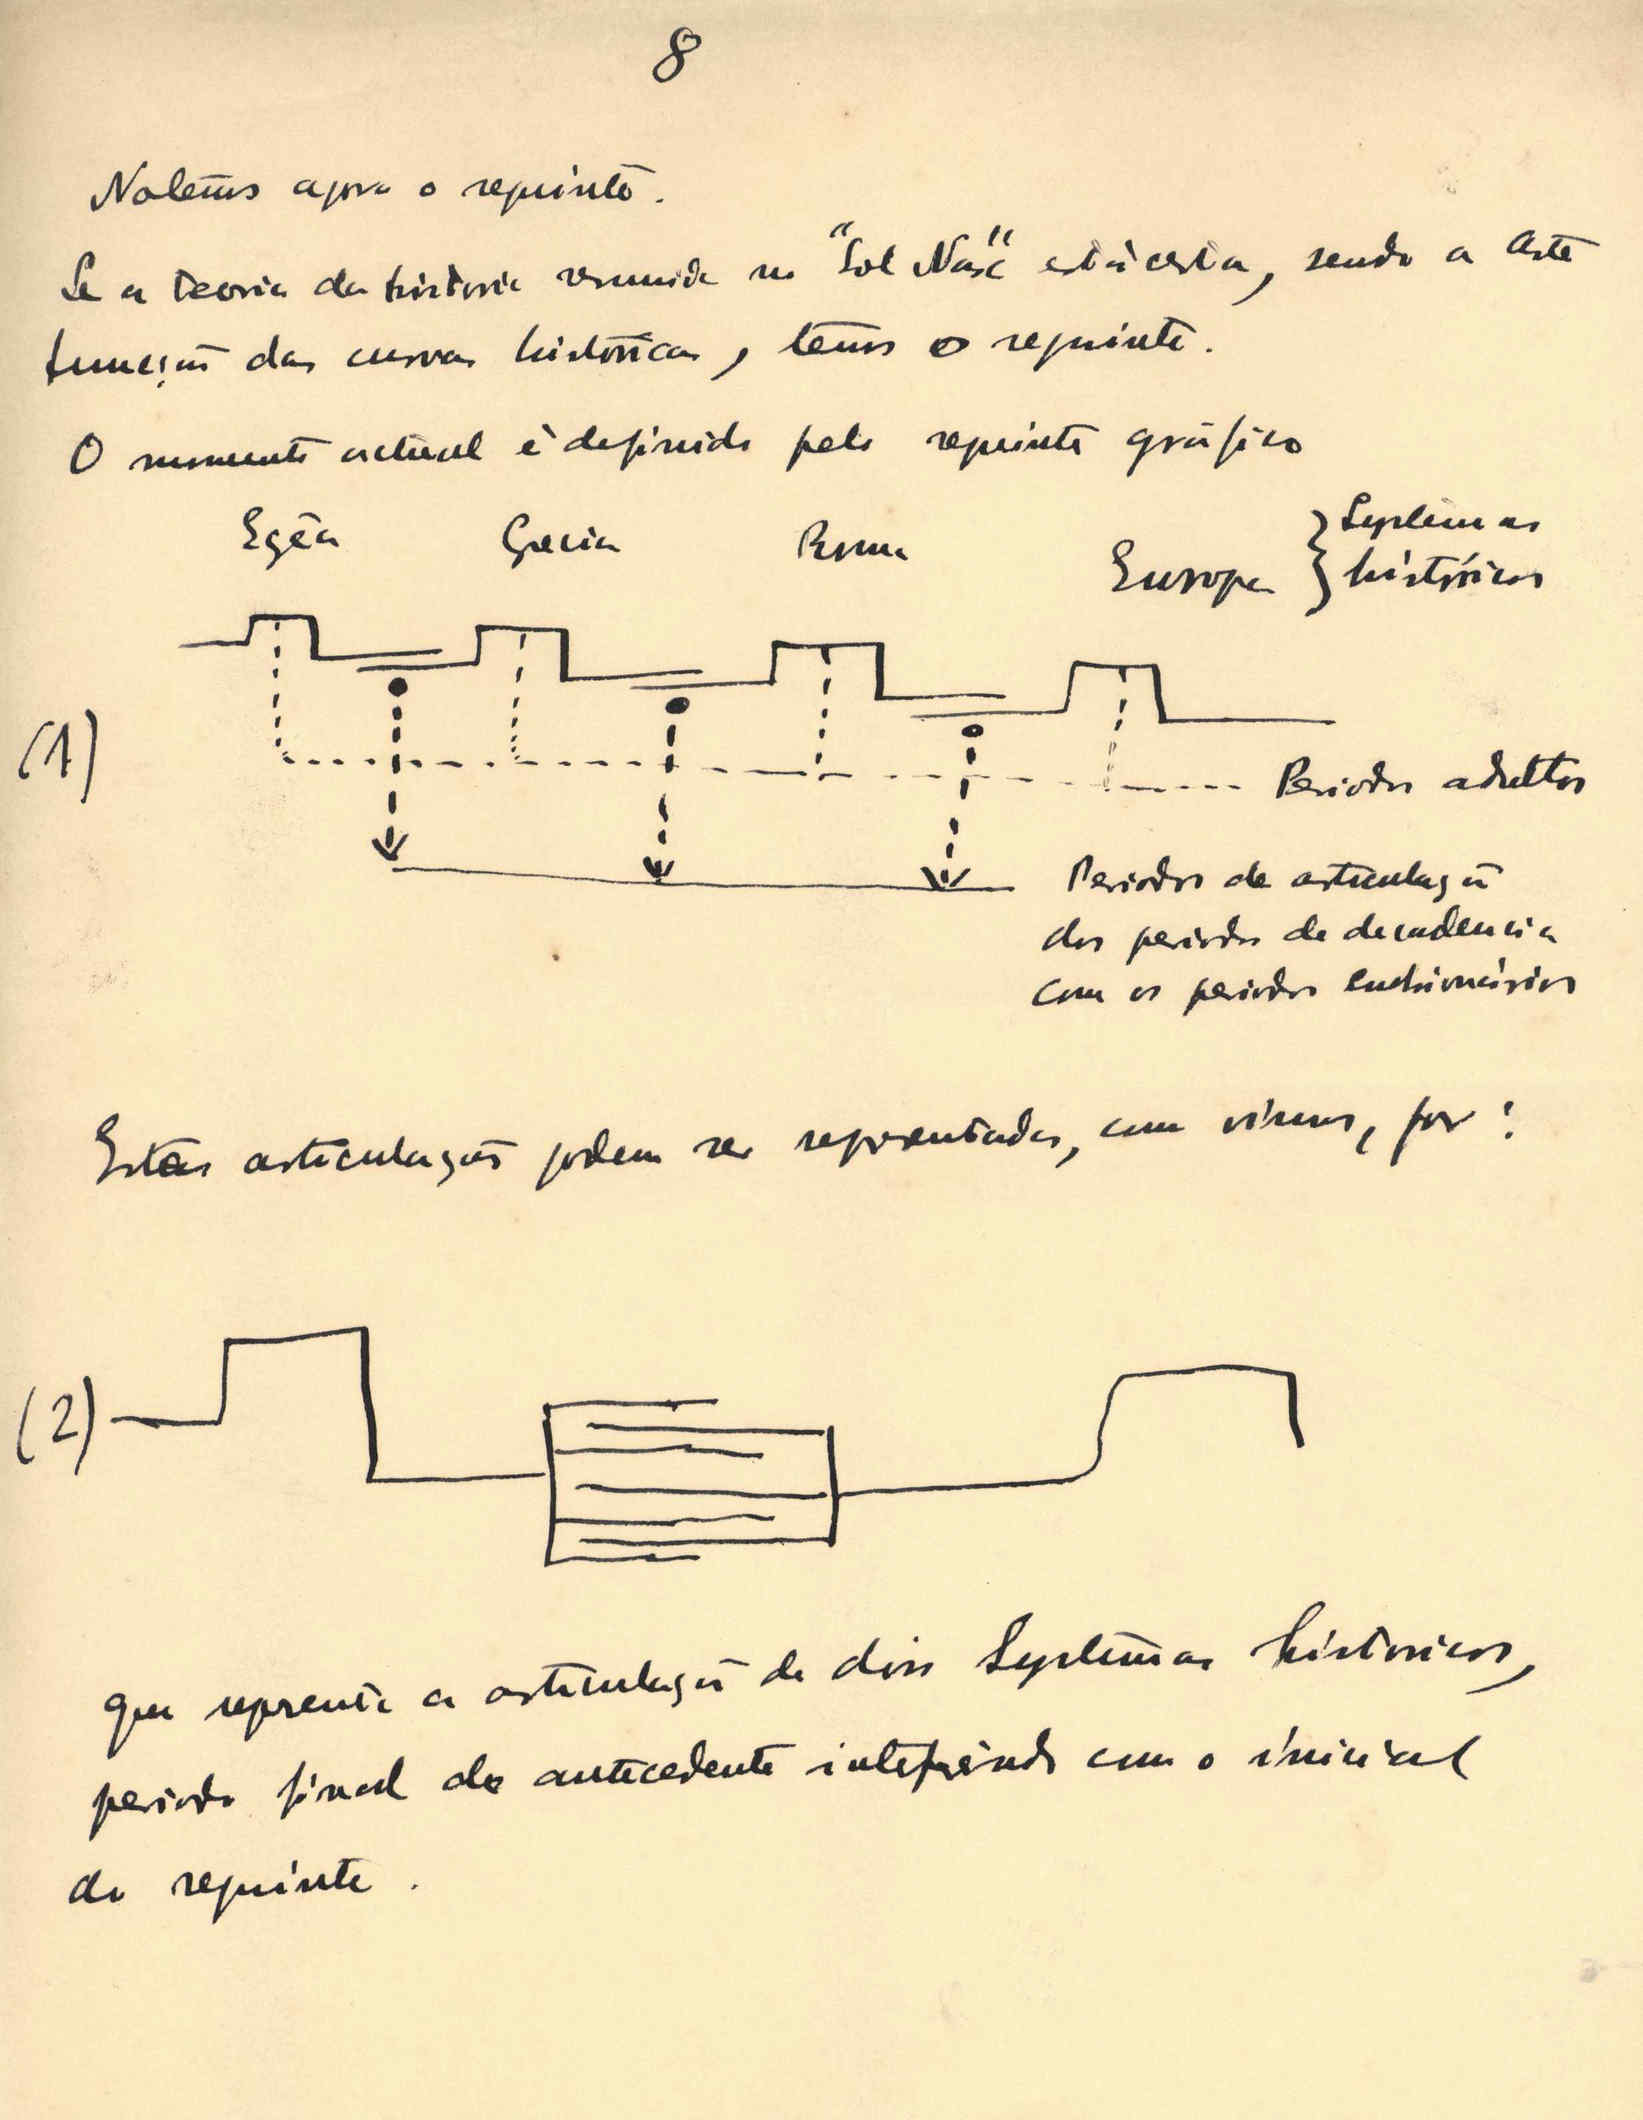 8
Notemos agora o seguinte.
Se a teoria da historia resumida no "Sol Nasc" está certa, sendo a Arte
função das curvas históricas, temos o seguinte.
O momento actual é definido pelo seguinte gráfico
Egêa Grecia Roma Europa } Systemas
históricos
(1)
Periodos adultos
Periodos de articulação
dos periodos de decadencia
com os periodos embrionários
Estas articulações podem ser representadas, como vimos, por:
(2)
que representa a articulação de dois Systemas historicos,
periodo final do antecedente interferindo com o inicial
do seguinte.